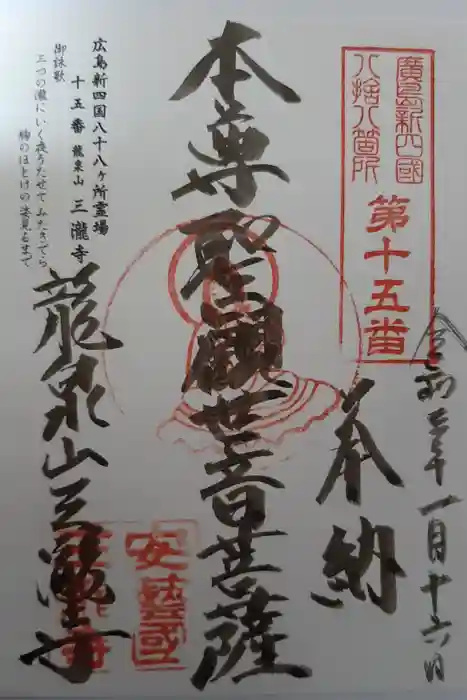 廣島新四國
八拾八箇所
第十五番
令和三年一月十六日
奉納
本尊聖觀世音菩薩
広島新四国八十八ヶ所霊場
十五番 龍泉山 三瀧寺
御詠歌
三つの瀧にいく夜うたせてみたきでら
峰のほとけの姿見るまで
龍泉山三瀧寺
安藝國